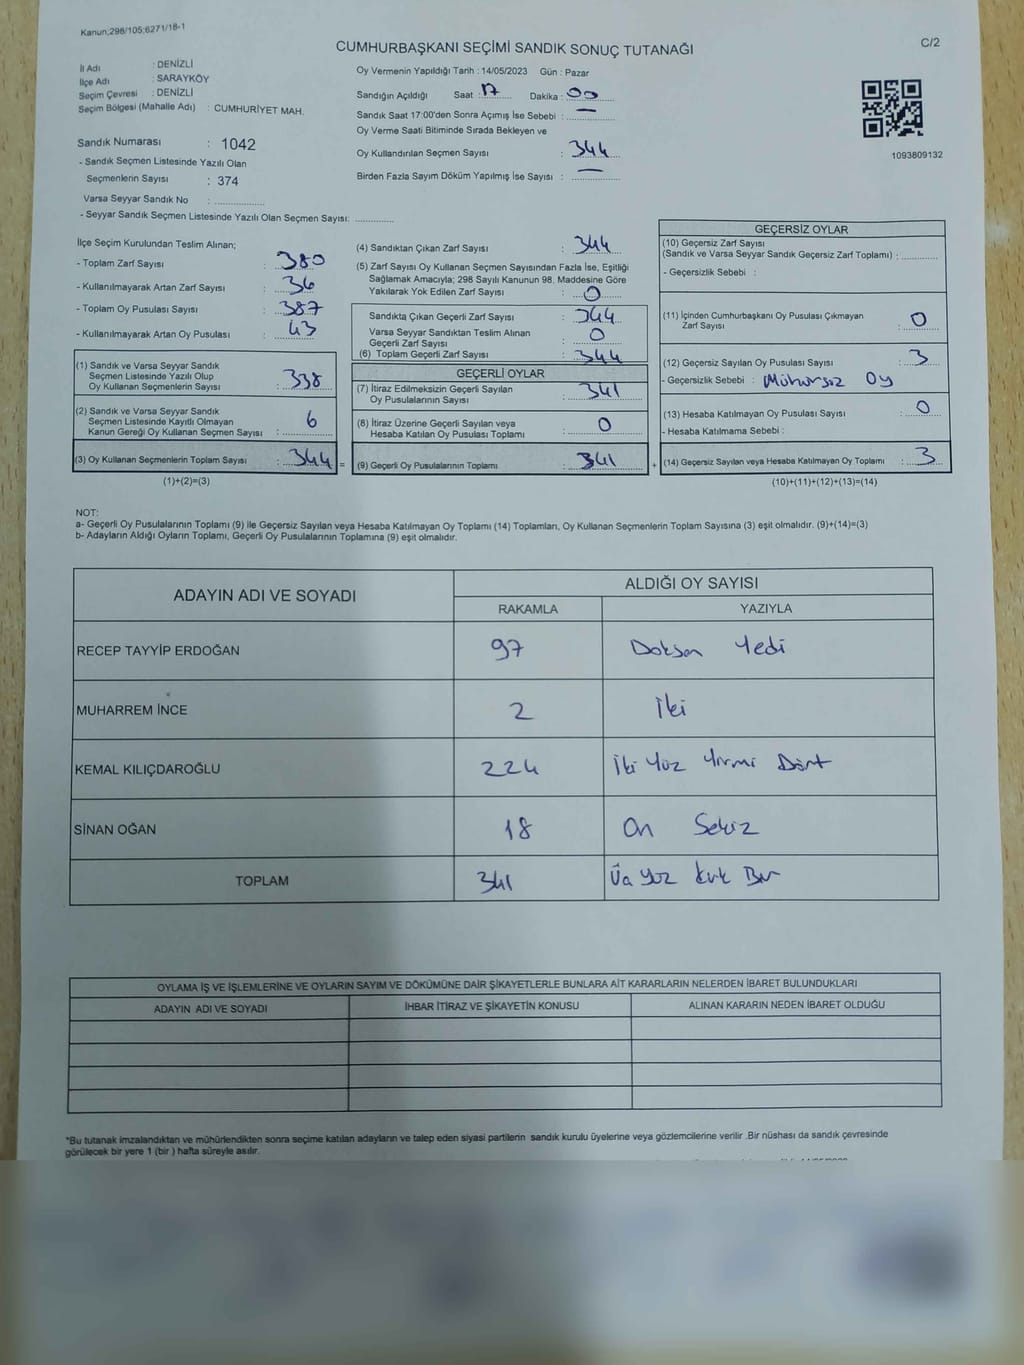 Kanun;298/105;6271/18-1
CUMHURBAŞKANI SEÇİMİ SANDIK SONUÇ TUTANAĞI
C/2
İl Adı : DENİZLİ
İlçe Adı : SARAYKÖY
Seçim Çevresi : DENİZLİ
Seçim Bölgesi (Mahalle Adı) : CUMHURİYET MAH.
Sandık Numarası : 1042
- Sandık Seçmen Listesinde Yazılı Olan
Seçmenlerin Sayısı : 374
Varsa Seyyar Sandık No : ................
- Seyyar Sandık Seçmen Listesinde Yazılı Olan Seçmen Sayısı: .............
Oy Vermenin Yapıldığı Tarih : 14/05/2023 Gün : Pazar
Sandığın Açıldığı Saat : 17 Dakika : 00
Sandık Saat 17:00'den Sonra Açımış İse Sebebi : —
Oy Verme Saati Bitiminde Sırada Bekleyen ve
Oy Kullandırılan Seçmen Sayısı : 344
Birden Fazla Sayım Döküm Yapılmış İse Sayısı : —
1093809132
İlçe Seçim Kurulundan Teslim Alınan;
- Toplam Zarf Sayısı : 380
- Kullanılmayarak Artan Zarf Sayısı : 36
- Toplam Oy Pusulası Sayısı : 387
- Kullanılmayarak Artan Oy Pusulası : 43
(1) Sandık ve Varsa Seyyar Sandık
Seçmen Listesinde Yazılı Olup
Oy Kullanan Seçmenlerin Sayısı : 338
(2) Sandık ve Varsa Seyyar Sandık
Seçmen Listesinde Kayıtlı Olmayan
Kanun Gereği Oy Kullanan Seçmen Sayısı : 6
(3) Oy Kullanan Seçmenlerin Toplam Sayısı : 344 =
(1)+(2)=(3)
(4) Sandıktan Çıkan Zarf Sayısı : 344
(5) Zarf Sayısı Oy Kullanan Seçmen Sayısından Fazla İse, Eşitliği
Sağlamak Amacıyla; 298 Sayılı Kanunun 98. Maddesine Göre
Yakılarak Yok Edilen Zarf Sayısı : 0
Sandıkta Çıkan Geçerli Zarf Sayısı : 344
Varsa Seyyar Sandıktan Teslim Alınan
Geçerli Zarf Sayısı : 0
(6) Toplam Geçerli Zarf Sayısı : 344
GEÇERLİ OYLAR
(7) İtiraz Edilmeksizin Geçerli Sayılan
Oy Pusulalarının Sayısı : 341
(8) İtiraz Üzerine Geçerli Sayılan veya
Hesaba Katılan Oy Pusulası Toplamı : 0
(9) Geçerli Oy Pusulalarının Toplamı : 341 +
GEÇERSİZ OYLAR
(10) Geçersiz Zarf Sayısı
(Sandık ve Varsa Seyyar Sandık Geçersiz Zarf Toplamı) : ............
- Geçersizlik Sebebi :
(11) İçinden Cumhurbaşkanı Oy Pusulası Çıkmayan
Zarf Sayısı : 0
(12) Geçersiz Sayılan Oy Pusulası Sayısı : 3
- Geçersizlik Sebebi : Mühürsüz Oy
(13) Hesaba Katılmayan Oy Pusulası Sayısı : 0
- Hesaba Katılmama Sebebi :
(14) Geçersiz Sayılan veya Hesaba Katılmayan Oy Toplamı : 3
(10)+(11)+(12)+(13)=(14)
NOT:
a- Geçerli Oy Pusulalarının Toplamı (9) ile Geçersiz Sayılan veya Hesaba Katılmayan Oy Toplamı (14) Toplamları, Oy Kullanan Seçmenlerin Toplam Sayısına (3) eşit olmalıdır. (9)+(14)=(3)
b- Adayların Aldığı Oyların Toplamı, Geçerli Oy Pusulalarının Toplamına (9) eşit olmalıdır.
ADAYIN ADI VE SOYADI ALDIĞI OY SAYISI
RAKAMLA YAZIYLA
RECEP TAYYİP ERDOĞAN 97 Doksan Yedi
MUHARREM İNCE 2 İki
KEMAL KILIÇDAROĞLU 224 İki Yüz Yirmi Dört
SİNAN OĞAN 18 On Sekiz
TOPLAM 341 Üç Yüz Kırk Bir
OYLAMA İŞ VE İŞLEMLERİNE VE OYLARIN SAYIM VE DÖKÜMÜNE DAİR ŞİKAYETLERLE BUNLARA AİT KARARLARIN NELERDEN İBARET BULUNDUKLARI
ADAYIN ADI VE SOYADI İHBAR İTİRAZ VE ŞİKAYETİN KONUSU ALINAN KARARIN NEDEN İBARET OLDUĞU
*Bu tutanak imzalandıktan ve mühürlendikten sonra seçime katılan adayların ve talep eden siyasi partilerin sandık kurulu üyelerine veya gözlemcilerine verilir .Bir nüshası da sandık çevresinde
görülecek bir yere 1 (bir ) hafta süreyle asılır.